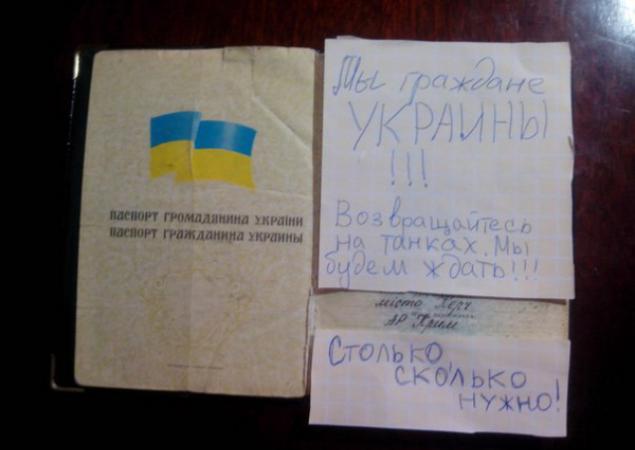 ПАСПОРТ ГРОМАДЯНИНА УКРАЇНИ
ПАСПОРТ ГРАЖДАНИНА УКРАИНЫ
Мы граждане
УКРАИНЫ
!!!
Возвращайтесь
на танках. Мы
будем ждать!!!
місто Керч
АР Крим
Столько,
сколько
нужно!